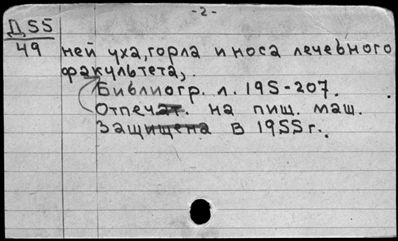 -2-
Д55
49
ней уха, горла и носа лечебного
факультета,.
Библиогр. л. 195-207.
Отпечат. на пиш. маш.
Защищена в 1955 г.